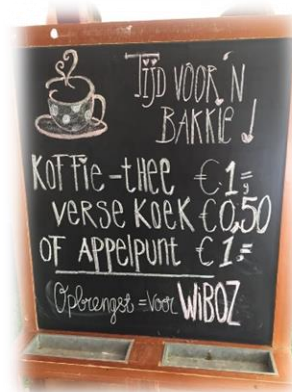 Tijd voor 'n
bakkie!
Koffie-thee €1=
verse koek €0,50
of appelpunt €1=
Opbrengst = voor WiBOZ